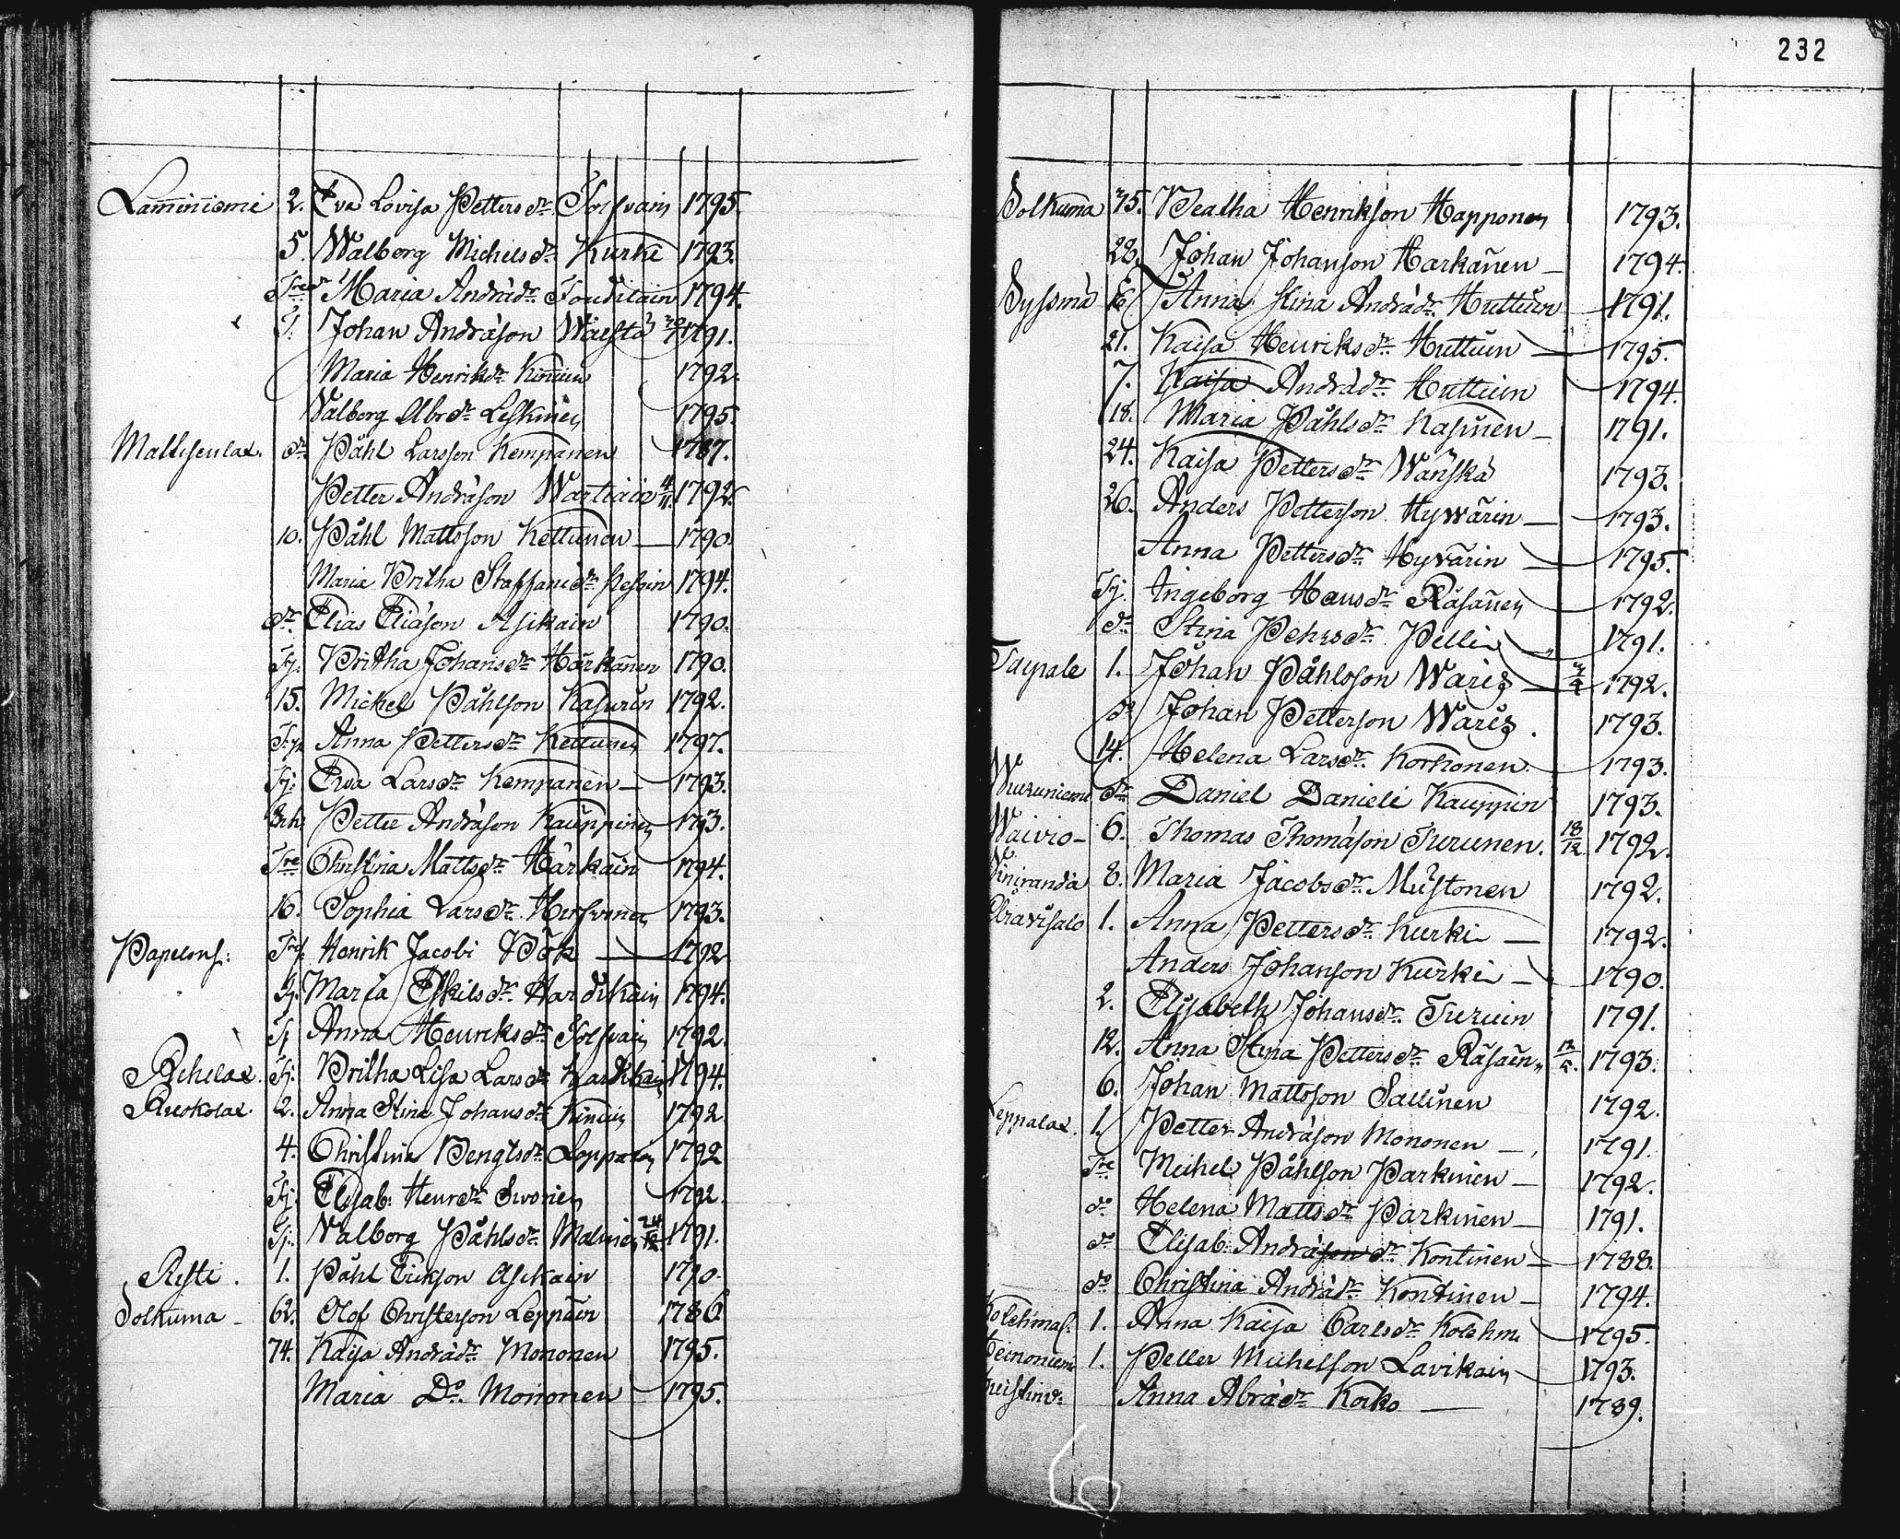 Laminiemi 2. Eva Lovisa Petters dr Tolfvain 1795.
5. Walborg Michels dr Kurki 1793.
Maria Andrä dr 1794.
Johan Andräson 1791.
Maria Henrik dr Kinnuin 1792.
Valborg Abr dr Leskinen 1795.
dr Påhl Larsson Kempanen 1787.
Petter Andräson Wartiain 4/11 1792.
10. Påhl Mattsson Kettunen 1790.
Maria Britha Staffans dr 1794.
dr Elias Eliäson Asikain 1790.
Tj. Britha Johans dr Härkänen 1790.
15. Michel Påhlson Kasurin 1792.
Anna Petters dr Kettunen 1797.
Tj. Eva Lars dr Kempanen 1793.
Petter Andräson Kauppinen 1793.
Christina Matts dr Härkäin 1794.
16. Sophia Lars dr 1793.
Henrik Jacobi Böök 1792
Tj. Maria Eskils dr Hardikain 1794.
Tj Anna Henriks dr Tolfvain 1792.
Tj. Britha Lisa Lars dr Hardikain 1794.
Ruokolax. 2. Anna Stina Johans dr Kinuin 1792
4. Christina Bengts dr Loppoin 1792
Tj. Elisab: Henr dr 1792.
Tj. Valborg Påhls dr Malinen 24/12 1791.
Risti. 1. Påhl Ericson Asikain 1790.
Solkuma 62. Olof Christerson Leppäin 1786.
74. Kaisa Andrä dr Mononen 1795.
Maria Do. Mononen 1795.
232
Solkuma 75. Beatha Henrikson Happonen 1793.
28. Johan Johanson Harkänen 1794.
Sysmä 16 Anna Stina Andrä dr Huttuin 1791.
21. Kaisa Henriks dr Huttuin 1795.
7. Kaisa Andrä dr Huttuin 1794.
18. Maria Påhls dr Kasuinen 1791.
24. Kaisa Petters dr Wänskä 1793.
26. Anders Petterson Hyvärin 1793.
Anna Petters dr Hyvärin 1795.
Tj. Ingeborg Hans dr Räsänen 1792.
do Stina Pehrs dr Pellin 1791.
Taipale 1. Johan Påhlsson Waris 1792.
do Johan Petterson Waris. 1793.
14. Helena Lars dr Korhonen. 1793.
Wuoruniemi dr Daniel Danieli Kauppin 1793.
Waivio 6. Thomas Thomäson Turunen. 18/12 1792.
Viniranda 8. Maria Jacobs dr Mustonen 1792.
Oravisalo 1. Anna Petters dr Kurki 1792.
Anders Johanson Kurki 1790.
2. Elisabeth Johans dr Turuin 1791.
12. Anna Stina Petters dr Räsäin 1793.
6. Johan Mattsson Sallinen 1792.
Leppälax. 1. Petter Andräson Mononen 1791.
Michel Påhlson Parkinen 1792.
do Helena Matts dr Parkinen 1791.
do Elisab: Andräson dr Kontinen 1788.
do Christina Andrä dr Kontinen 1794.
1. Anna Kaisa Carls dr Kolehm. 1795.
Heinoniemi 1. Petter Michelson Lavikain 1793.
Anna Abrä dr Korko 1789.
6